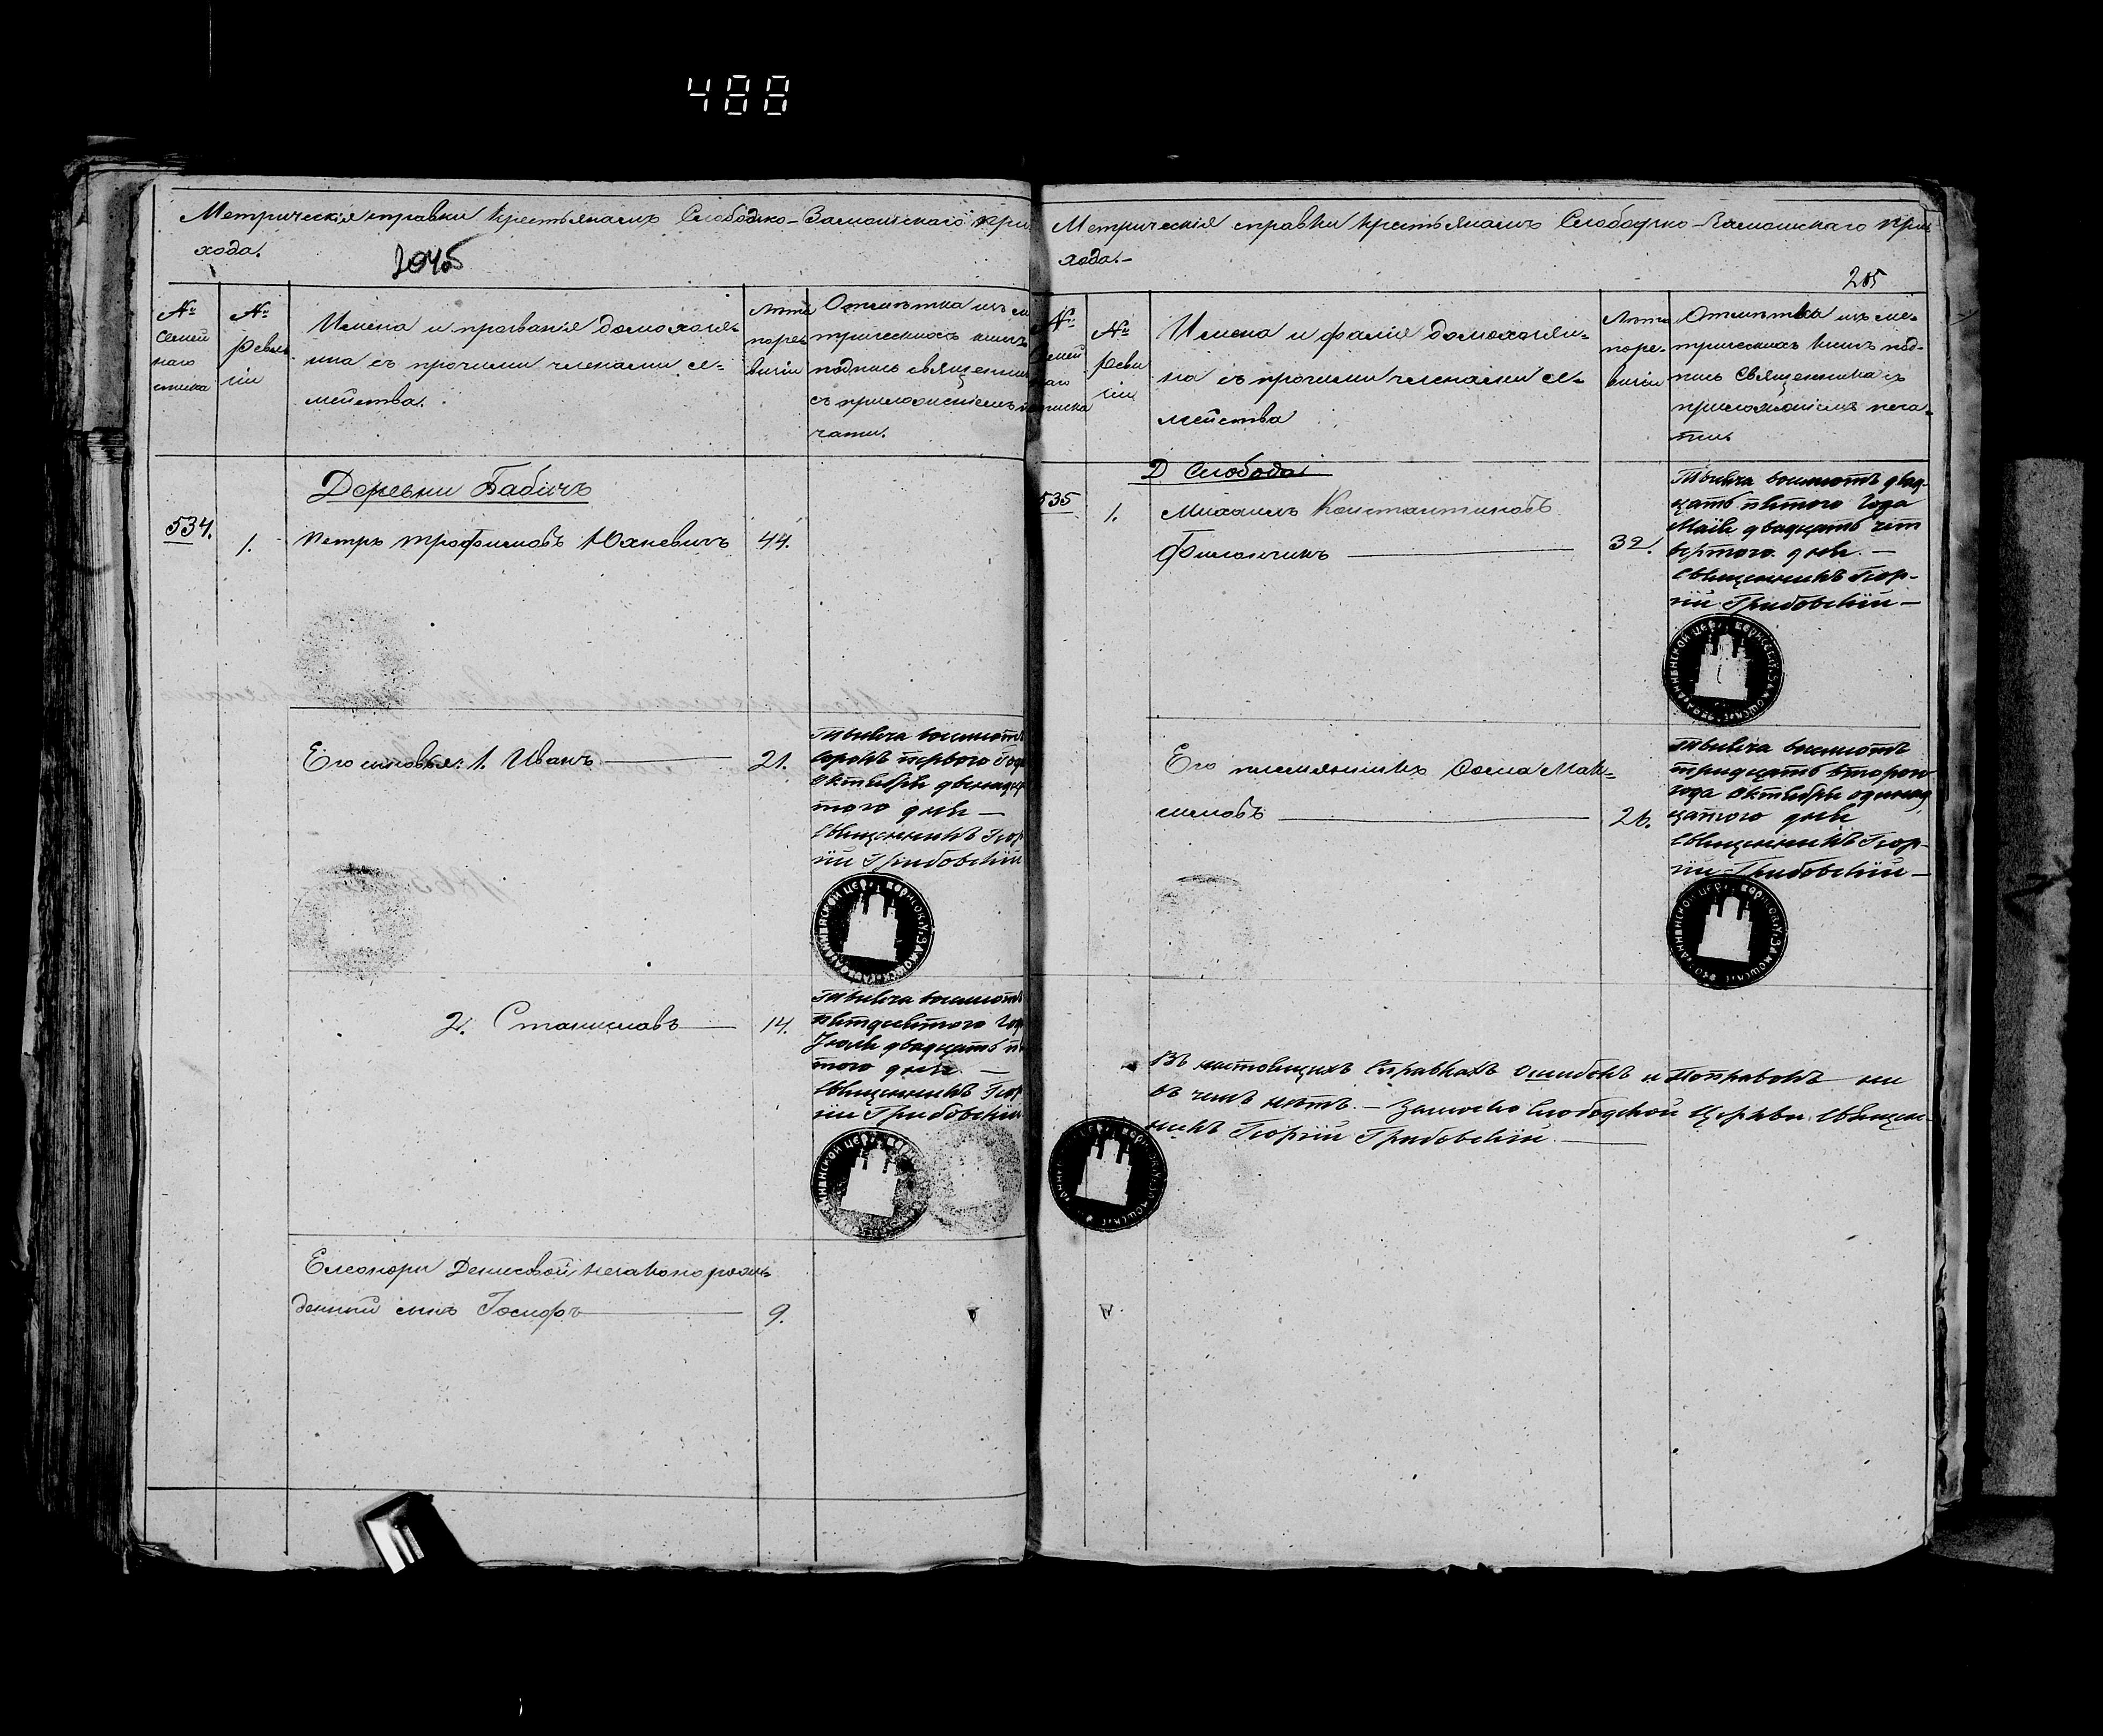 488
Метрическія справки крестьянамъ Слободско-Замошскаго при
хода.
204об
№
семей
наго
списка
№
ревиз
іи
Имена и прозванія домохозяи-
на съ прочими членами се-
мейства.
Лѣта
по ре
визіи
Отмѣтка изъ ме
трическихъ книгъ
подпись священни
съ приложеніемъ пе
чати.
Деревни Бабичъ
534.
1.
Петръ Трофимовъ Юхневичъ
44.
Его сыновья: 1. Иванъ
21.
Тысяча восемьсотъ
сорокъ перваго Года
Октября двенадца
таго дня —
Священникъ Геор
гій Грибовскій
2. Станиславъ
14.
Тысяча восемьсотъ
пятдесятого Года
Іюля двадцать пя
того дня. —
Священникъ Геор
гій Грибовскій
Елеоноры Денисовой незаконорож-
денный сынъ Іосифъ
9.
Метрическія справки крестьянамъ Слободско-Замошскаго при
хода. —
205
№
семей
наго
списка
№
реви
зіи
Имена и фаміліи домохозяи-
на съ прочими членами се-
мейства
Лѣта
по ре-
визіи
Отмѣтка изъ ме-
трическихъ книгъ под-
пись священника съ
приложеніемъ печа-
ти.
Д Слобода
535
1.
Михаилъ Константиновъ
Филончикъ
32.
Тысяча восемьсотъ двад-
цать пятого Года
Маія двадцать чет
вертого дня. —
Священникъ Геор-
гій Грибовскій —
Его племянникъ Фома Мак-
симовъ
26.
Тысяча восемьсотъ
тридцать второго
года Октября одинад
цатого дня
Священникъ Геор-
гій Грибовскій —
Въ настоящихъ Справкахъ ошибокъ и поправокъ ни
въ чемъ нѣтъ. — Замошско Слободской Церкви Священ-
никъ Георгій Грибовскій.